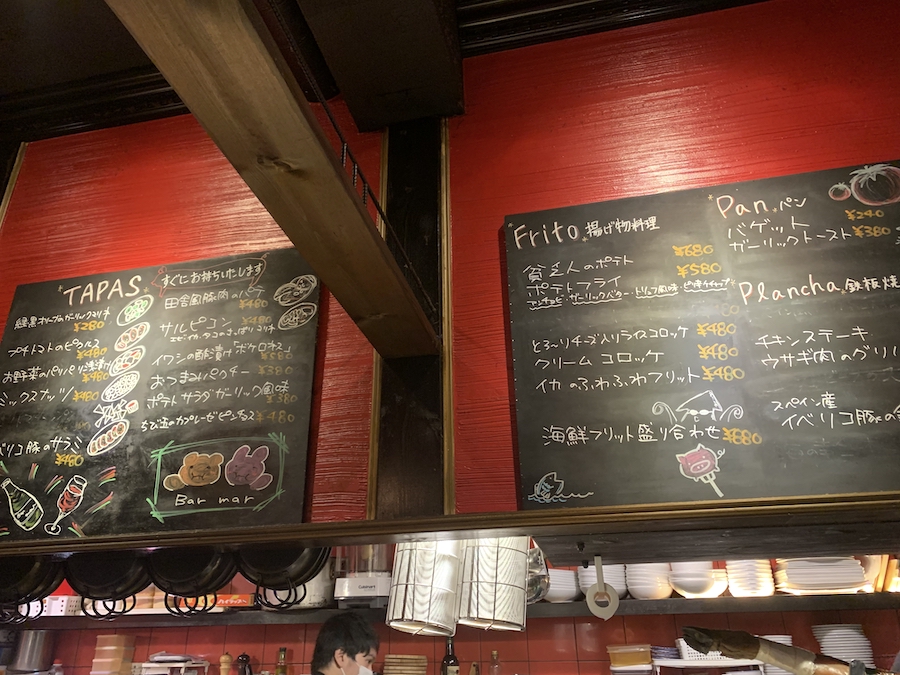 TAPAS
すぐにお持ちいたします
緑黒オリーブのガーリックマリネ
¥280
プチトマトのピクルス
¥480
お野菜のパリパリ浅漬け
¥480
ミックスナッツ ¥480
ベリコ豚のサラミ
¥480
田舎風豚肉のパテ
¥480
サルピコン ¥480
イワシの酢漬け「ボケロネス」
¥580
おつまみパクチー ¥380
ポテトサラダガーリック風味
¥380
¥480
Bar mar
Frito 揚げ物料理
貧乏人のポテト ¥680
ポテトフライ ¥580
アンチョビ・ガーリックバター・トリュフ風味・
とろ〜りチーズ入りライスコロッケ ¥480
クリームコロッケ
イカのふわふわフリット ¥480
海鮮フリット盛り合わせ ¥880
Pan パン
バゲット ¥240
ガーリックトースト ¥380
Plancha 鉄板焼
チキンステーキ
ウサギ肉のグリ
スペイン産
イベリコ豚の
Cuisinart